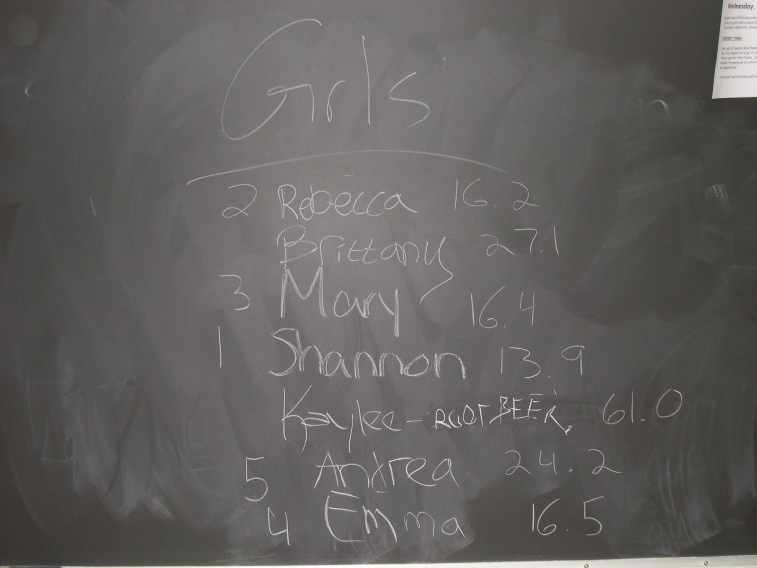 Girls
2 Rebecca 16.2
Brittany 27.1
3 Mary 16.4
1 Shannon 13.9
Kaylee - ROOT BEER, 61.0
5 Andrea 24.2
4 Emma 16.5